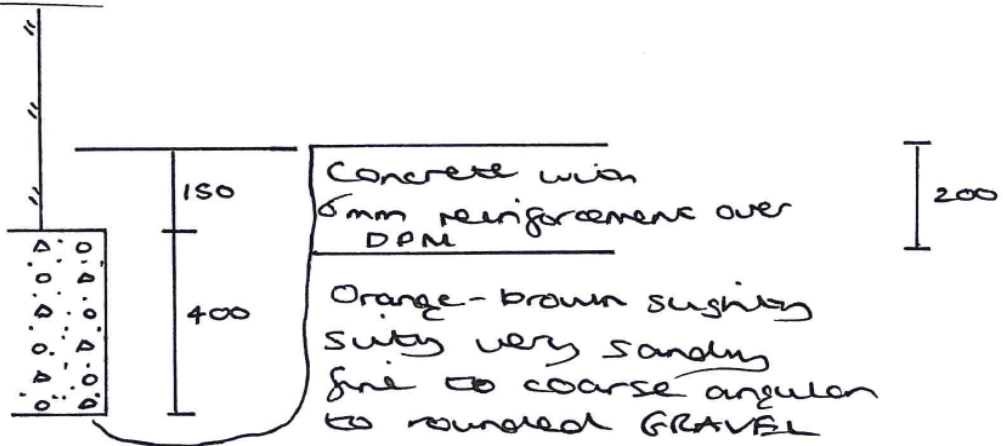 150
Concrete with
6mm reinforcement over
DPM
200
400
Orange-brown slightly
silty very sandy
fine to coarse angular
to rounded GRAVEL